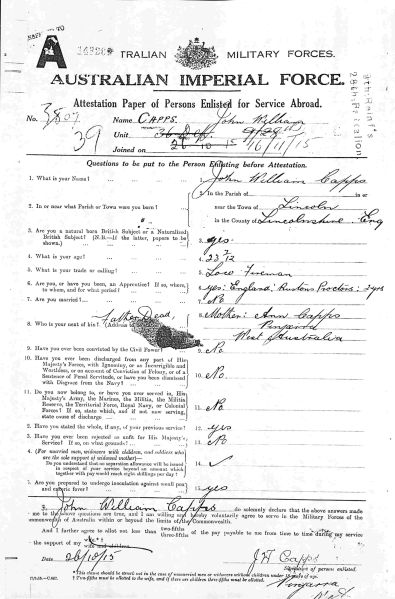 A
TRALIAN MILITARY FORCES.
AUSTRALIAN IMPERIAL FORCE.
Attestation Paper of Persons Enlisted for Service Abroad.
No. 3807 Name CAPPS. John William
39 Unit 9/28th
Joined on 26 10 15 16/11/15
28th Battalion
Questions to be put to the Person Enlisting before Attestation.
1. What is your Name? 1. John William Capps
2. In or near what Parish or Town were you born? 2. In the Parish of in or
near the Town of Lincoln
in the County of Lincolnshire Eng
3. Are you a natural born British Subject or a Naturalized
British Subject? (N.B.—If the latter, papers to be
shown.) 3. yes
4. What is your age? 4. 23 7/12
5. What is your trade or calling? 5. Loco Fireman
6. Are you, or have you been, an Apprentice? If so, where,
to whom, and for what period? 6. yes: England: Rustons Proctors: 3yrs
7. Are you married? 7.
8. Who is your next of kin? (Address to Father Dead, 8. Mother: Ann Capps
Pinjarra
West Australia
9. Have you ever been convicted by the Civil Power? 9. No
10. Have you ever been discharged from any part of His
Majesty's Forces, with Ignominy, or as Incorrigible and
Worthless, or on account of Conviction of Felony, or of a
Sentence of Penal Servitude, or have you been dismissed
with Disgrace from the Navy? 10. No
11. Do you now belong to, or have you ever served in, His
Majesty's Army, the Marines, the Militia, the Militia
Reserve, the Territorial Force, Royal Navy, or Colonial
Forces? If so, state which, and if not now serving,
state cause of discharge 11. No
Have you stated the whole, if any, of your previous service? 12. yes
Have you ever been rejected as unfit for His Majesty's
Service? If so, on what grounds? 13. No
(For married men, widowers with children, and soldiers who
are the sole support of widowed mother)—
Do you understand that no separation allowance will be issued
in respect of your service beyond an amount which
together with pay would reach eight shillings per day? 14. ✓
Are you prepared to undergo inoculation against small pox
and enteric fever? 15. yes
I, John William Capps do solemnly declare that the above answers made
me to the above questions are true, and I am willing and hereby voluntarily agree to serve in the Military Forces of the
Commonwealth of Australia within or beyond the limits of the Commonwealth.
And I further agree to allot not less than two-fifths three-fifths of the pay payable to me from time to time during my service
the support of my wife wife and children
Date 26/10/15 J W Capps
Signature of person enlisted.
Pinjarra
* This clause should be struck out in the case of unmarried men or widowers without children under 18 years of age.
† Two-fifths must be allotted to the wife, and if there are children three-fifths must be allotted.